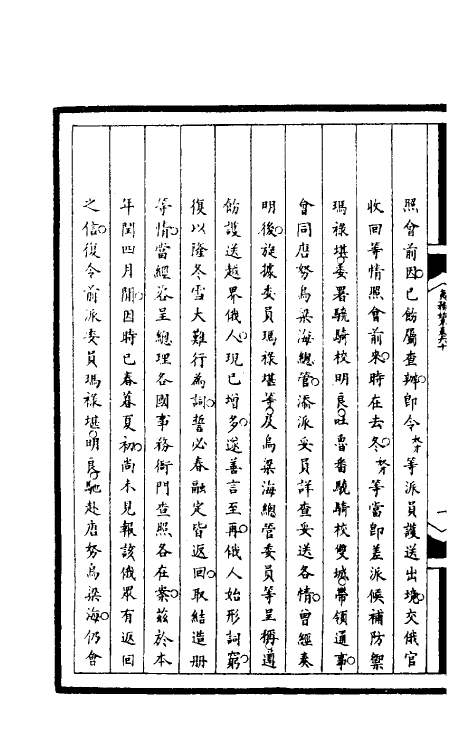 照會前因已飭屬查辦卽令奴才等派員護送出境交俄官
收回等情照會前來時在去冬奴才等當卽差派候補防禦
瑪祿堪委署驍騎校明良吐魯番驍騎校雙城帶領通事
會同唐努烏梁海總管添派妥員詳查妥送各情曾經奏
明後旋據委員瑪祿堪等及烏梁海總管委員等呈稱遵
飭護送越界俄人現已增多遂善言至再俄人始形詞窮
復以隆冬雪大難行為詞誓必春融定皆返回取結造册
等情當經咨呈總理各國事務衙門查照各在案茲於本
年閏四月開因時已春暮夏初尚未見報該俄眾有返回
之信復令前派委員瑪祿堪明良馳赴唐努烏梁海仍會